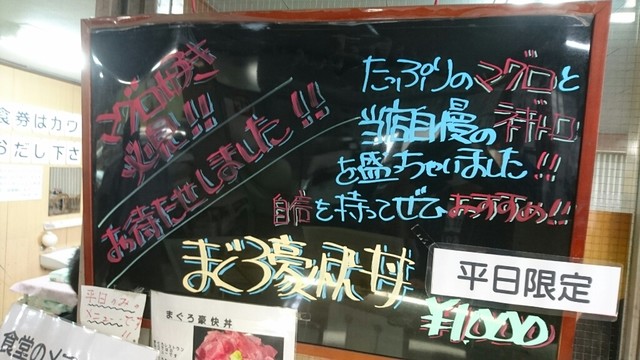 マグロ好き
必見!!
お待たせしました!!
たっぷりのマグロと
当店自慢のネギトロ
を盛っちゃいました!!
自信を持ってぜひおすすめ!!
まぐろ豪快丼
平日限定
¥1,000
食券はカウ
おだし下さ
平日のみの
メニューです
まぐろ豪快丼
食堂のメニ